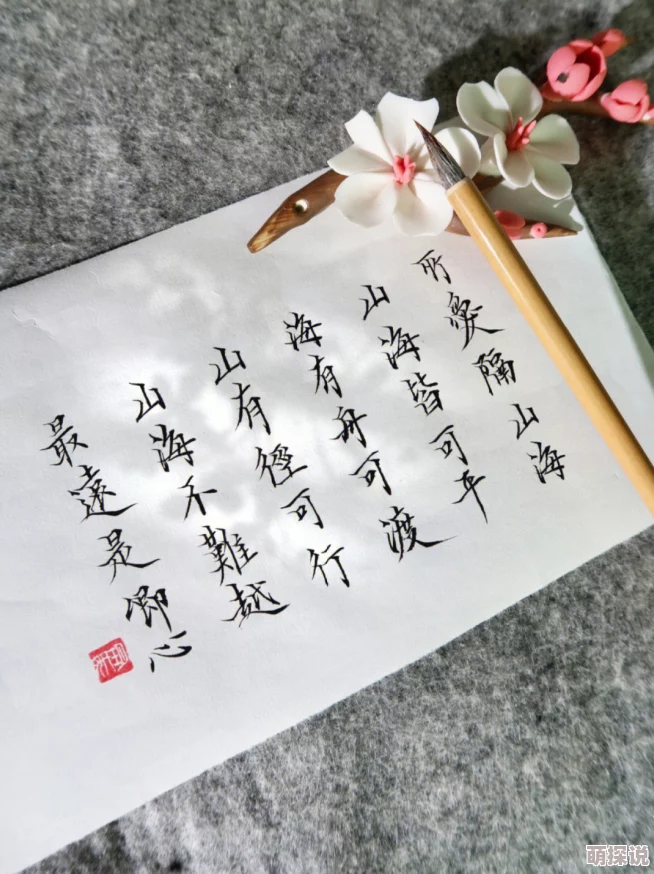 所愛隔山海
山海皆可平
海有舟可渡
山有徑可行
山海不難越
最遠是卿心
萌探说